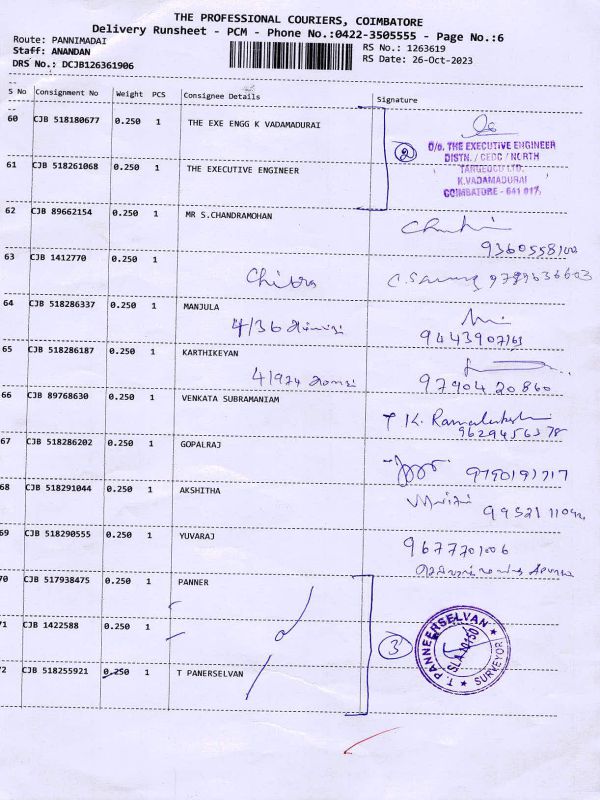 THE PROFESSIONAL COURIERS, COIMBATORE
Delivery Runsheet - PCM - Phone No.:0422-3505555 - Page No.:6
Route: PANNIMADAI
RS No.: 1263619
Staff: ANANDAN
RS Date: 26-Oct-2023
DRS No.: DCJB126361906
S No Consignment No Weight PCS Consignee Details Signature
60 CJB 518180677 0.250 1 THE EXE ENGG K VADAMADURAI
2
O/o. THE EXECUTIVE ENGINEER
DISTN. / CEDC / NORTH
TANGEDCO LTD.
K.VADAMADURAI
COIMBATORE - 641 017.
61 CJB 518261068 0.250 1 THE EXECUTIVE ENGINEER
62 CJB 89662154 0.250 1 MR S.CHANDRAMOHAN
63 CJB 1412770 0.250 1
Chitra
64 CJB 518286337 0.250 1 MANJULA
4/36
65 CJB 518286187 0.250 1 KARTHIKEYAN
9790420860
66 CJB 89768630 0.250 1 VENKATA SUBRAMANIAM
67 CJB 518286202 0.250 1 GOPALRAJ
9790191717
68 CJB 518291044 0.250 1 AKSHITHA
69 CJB 518290555 0.250 1 YUVARAJ
9677701006
70 CJB 517938475 0.250 1 PANNER
71 CJB 1422588 0.250 1
3
T. PANNEERSELVAN
SURVEYOR
72 CJB 518255921 0.250 1 T PANERSELVAN